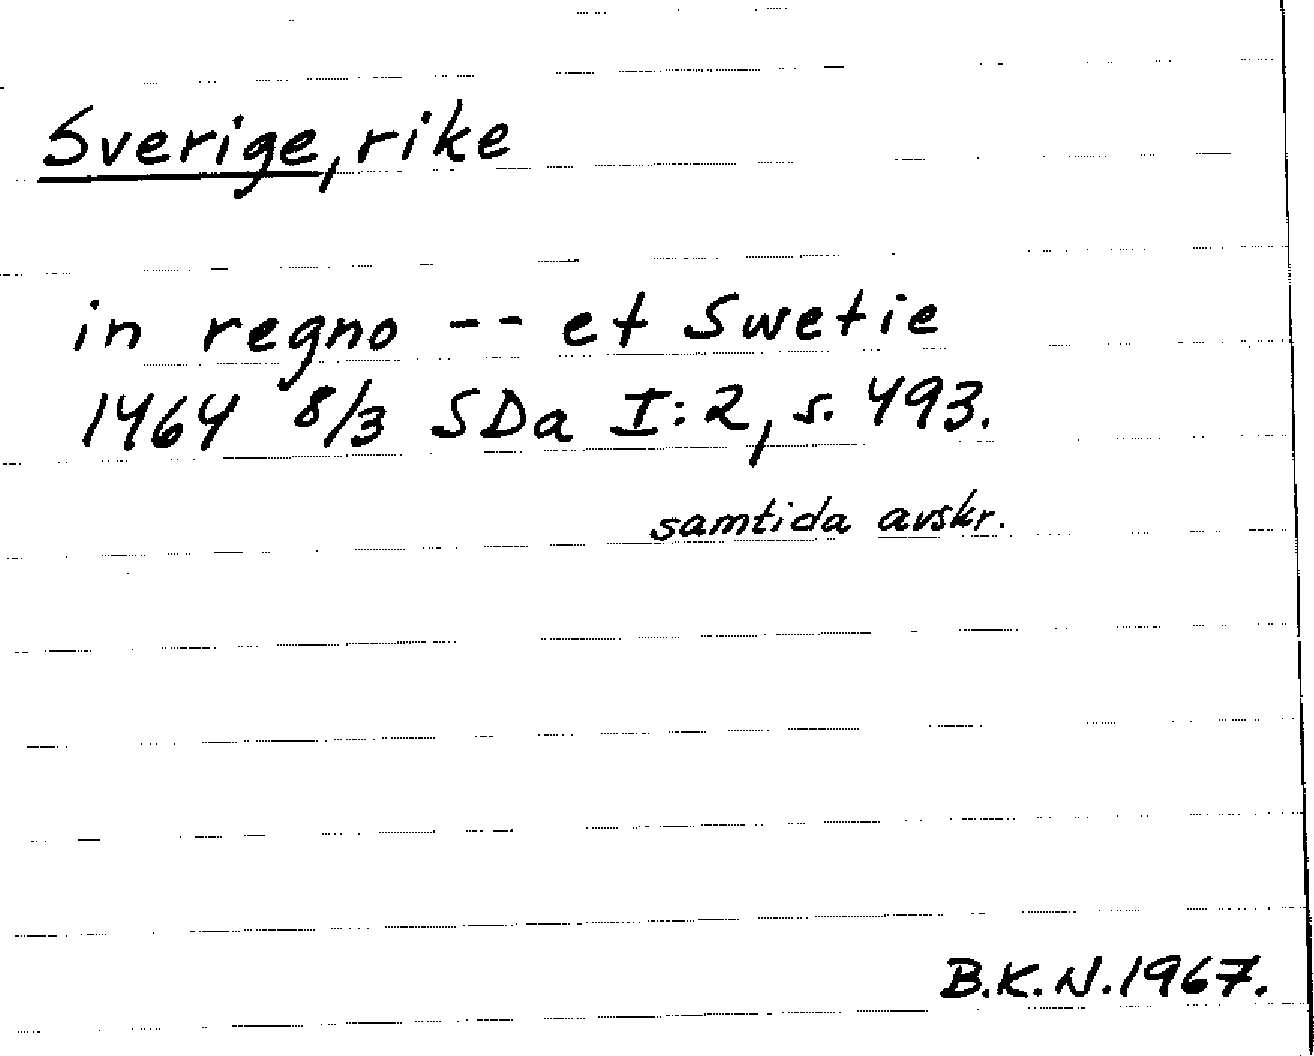 Sverige, rike
in regno -- et Swetie
1464 8/3 SDa I:2, s. 493.
samtida avskr.
B.K.N. 1967.